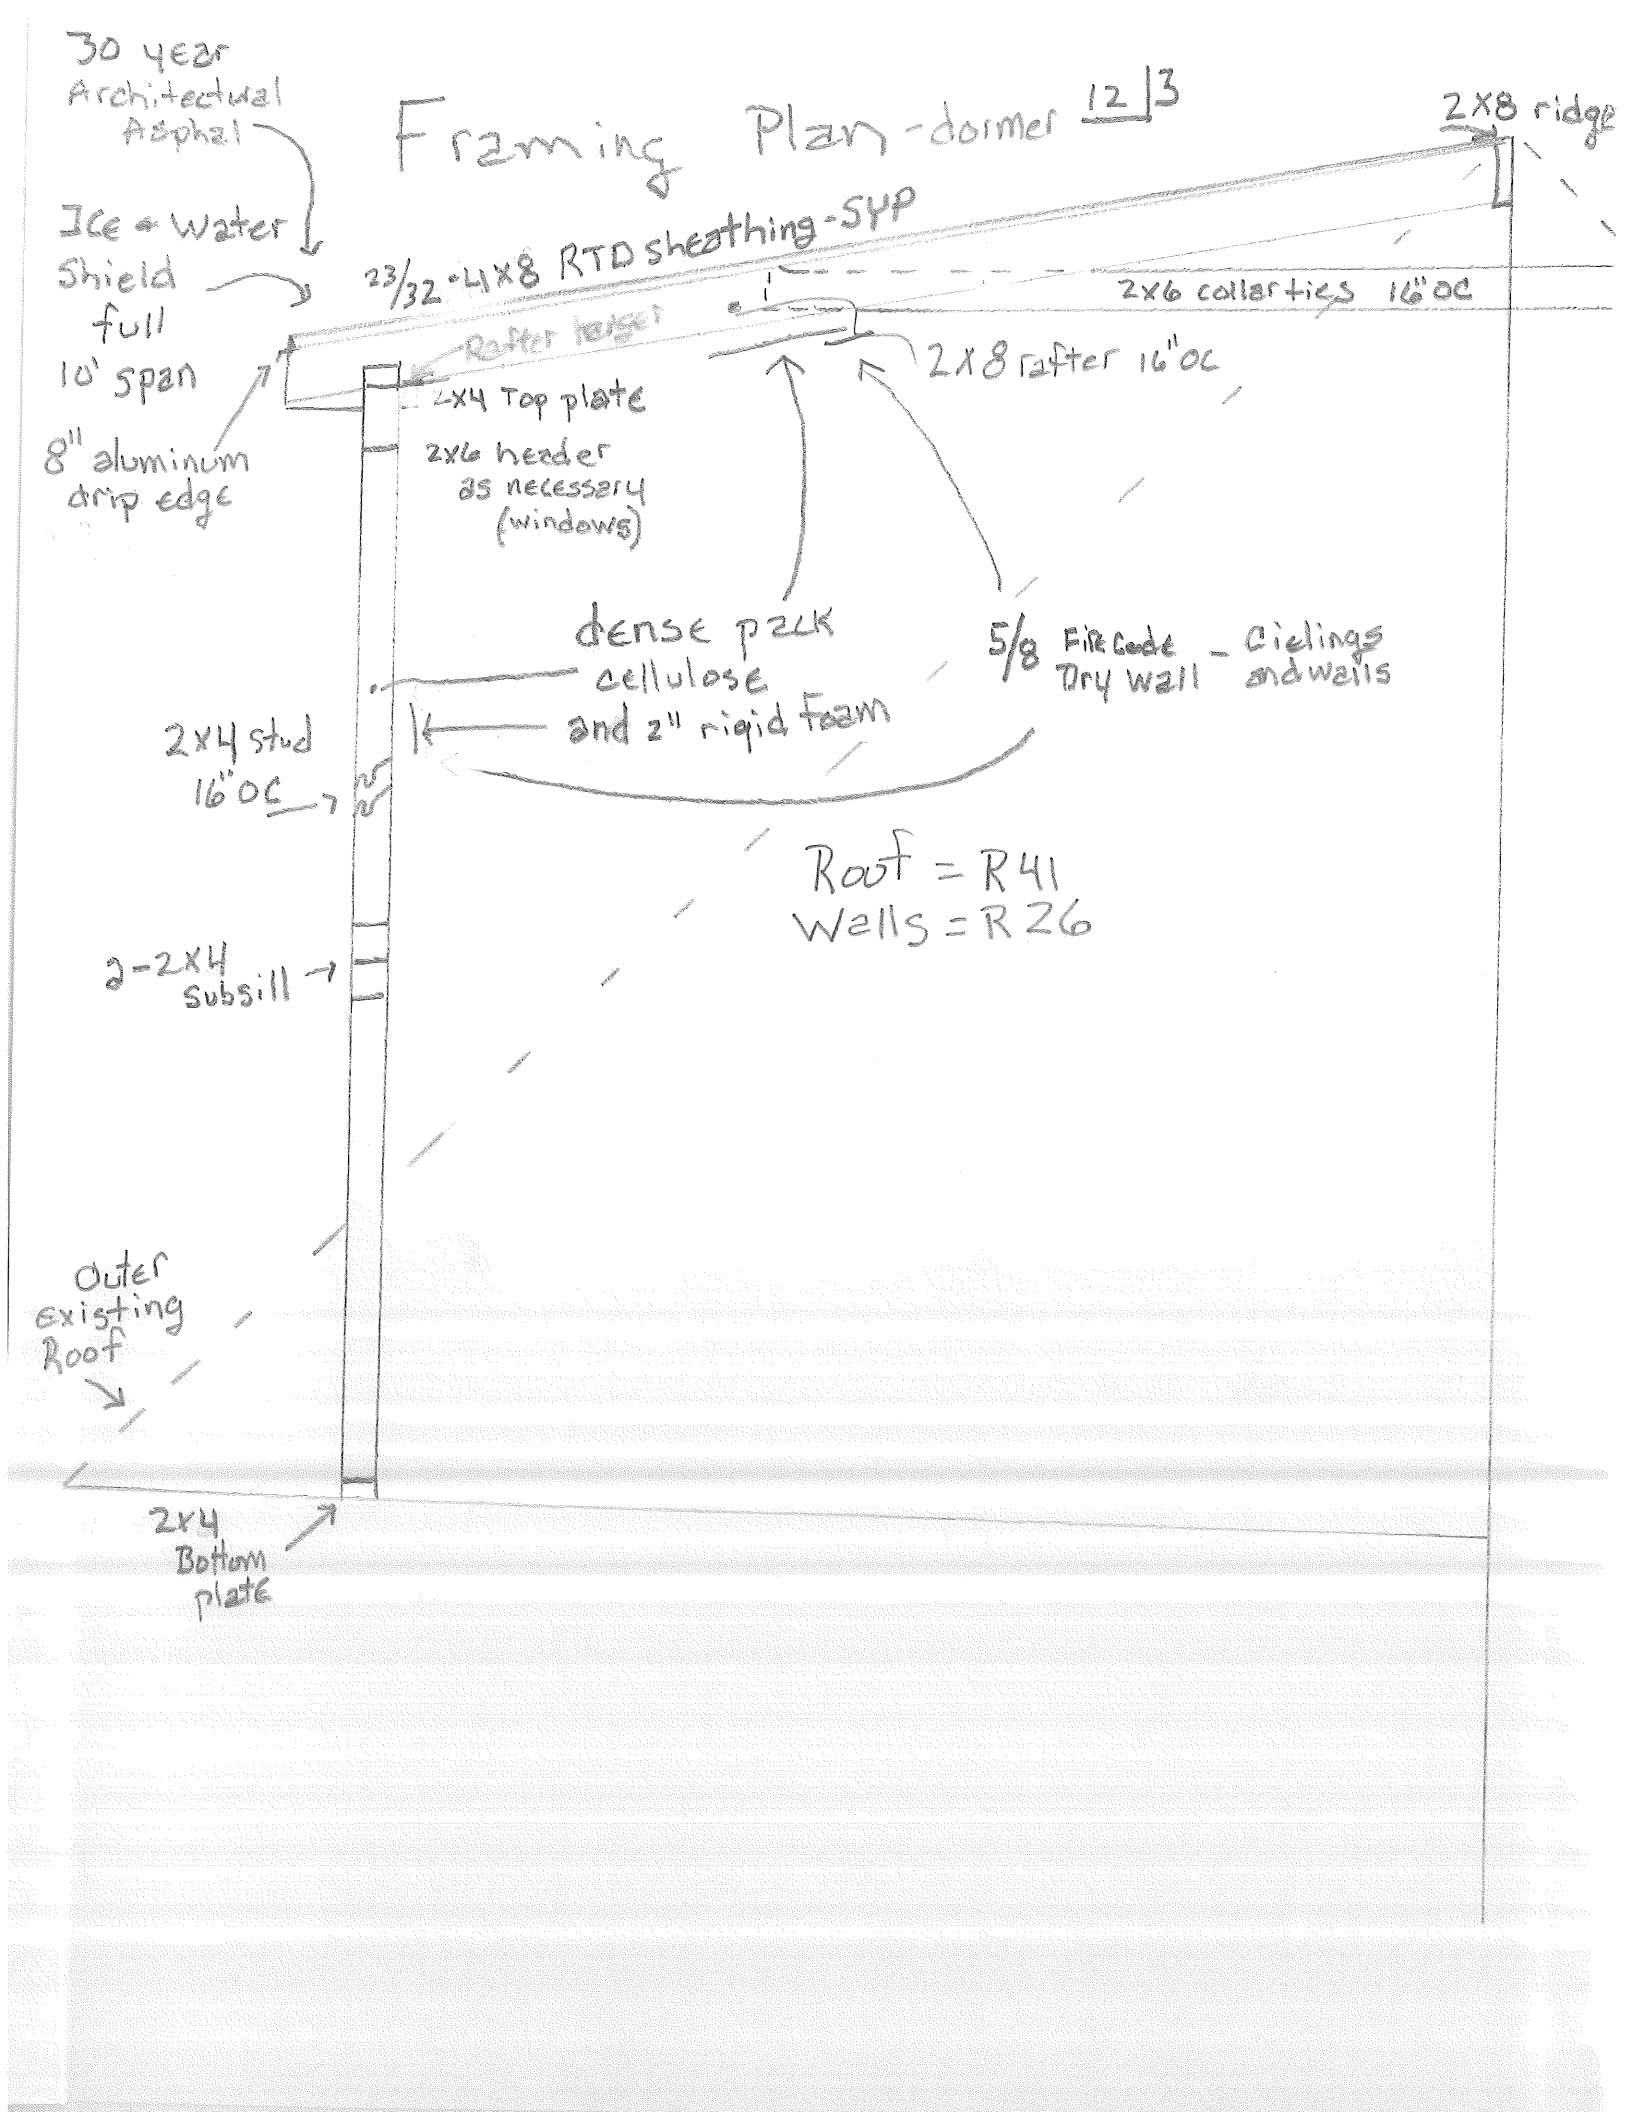 30 year
Architectural
Asphal
Framing Plan - dormer 12 3
2x8 ridge
Ice & Water
Shield
full
10' span
23/32 - 4x8 RTD sheathing - SYP
2x6 collar ties 16" OC
Rafter hanger
2x8 rafter 16" OC
2x4 Top plate
8" aluminum
drip edge
2x6 header
as necessary
(windows)
dense pack
cellulose
and 2" rigid Foam
5/8 Fire Code - Cielings
Dry wall and walls
2x4 stud
16" OC
Roof = R41
Walls = R26
2-2x4
subsill
Outer
Existing
Roof
2x4
Bottom
plate